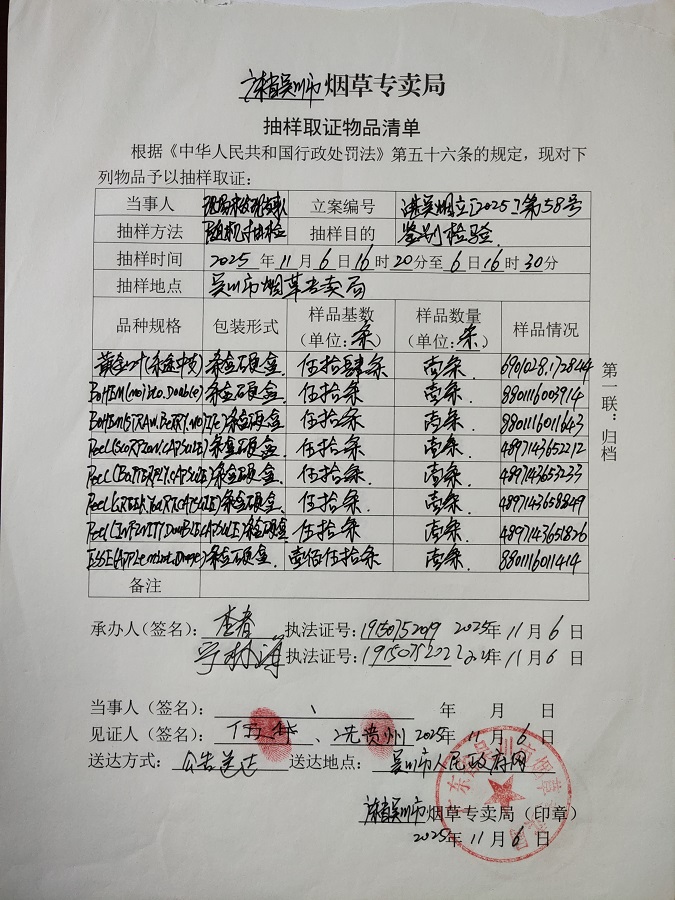 广东省吴川市烟草专卖局
抽样取证物品清单
根据《中华人民共和国行政处罚法》第五十六条的规定，现对下
列物品予以抽样取证：
当事人 现场未发现当事人 立案编号 湛吴烟立[2025]第58号
抽样方法 随机抽检 抽样目的 鉴别检验
抽样时间 2025年11月6日16时20分至6日16时30分
抽样地点 吴川市烟草专卖局
品种规格 包装形式 样品基数（单位：条） 样品数量（单位：条） 样品情况
黄金叶 条盒硬盒 伍拾肆条 壹条 6901028172844
BOHEM 条盒硬盒 伍拾条 壹条 8801116003914
BOHEM 条盒硬盒 伍拾条 壹条 8801116011643
条盒硬盒 伍拾条 壹条 4897143652212
条盒硬盒 伍拾条 壹条 4897143653233
条盒硬盒 伍拾条 壹条 4897143658849
条盒硬盒 伍拾条 壹条 4897143651826
ESSE 条盒硬盒 壹佰伍拾条 壹条 8801116011414
备注
第一联：归档
承办人（签名）： 执法证号：19150752019 2025年11月6日
执法证号： 年11月6日
当事人（签名）： 年 月 日
见证人（签名）： 、冼贵州 2025年11月6日
送达方式：公告送达 送达地点：吴川市人民政府网
广东省吴川市烟草专卖局（印章）
2025年11月6日